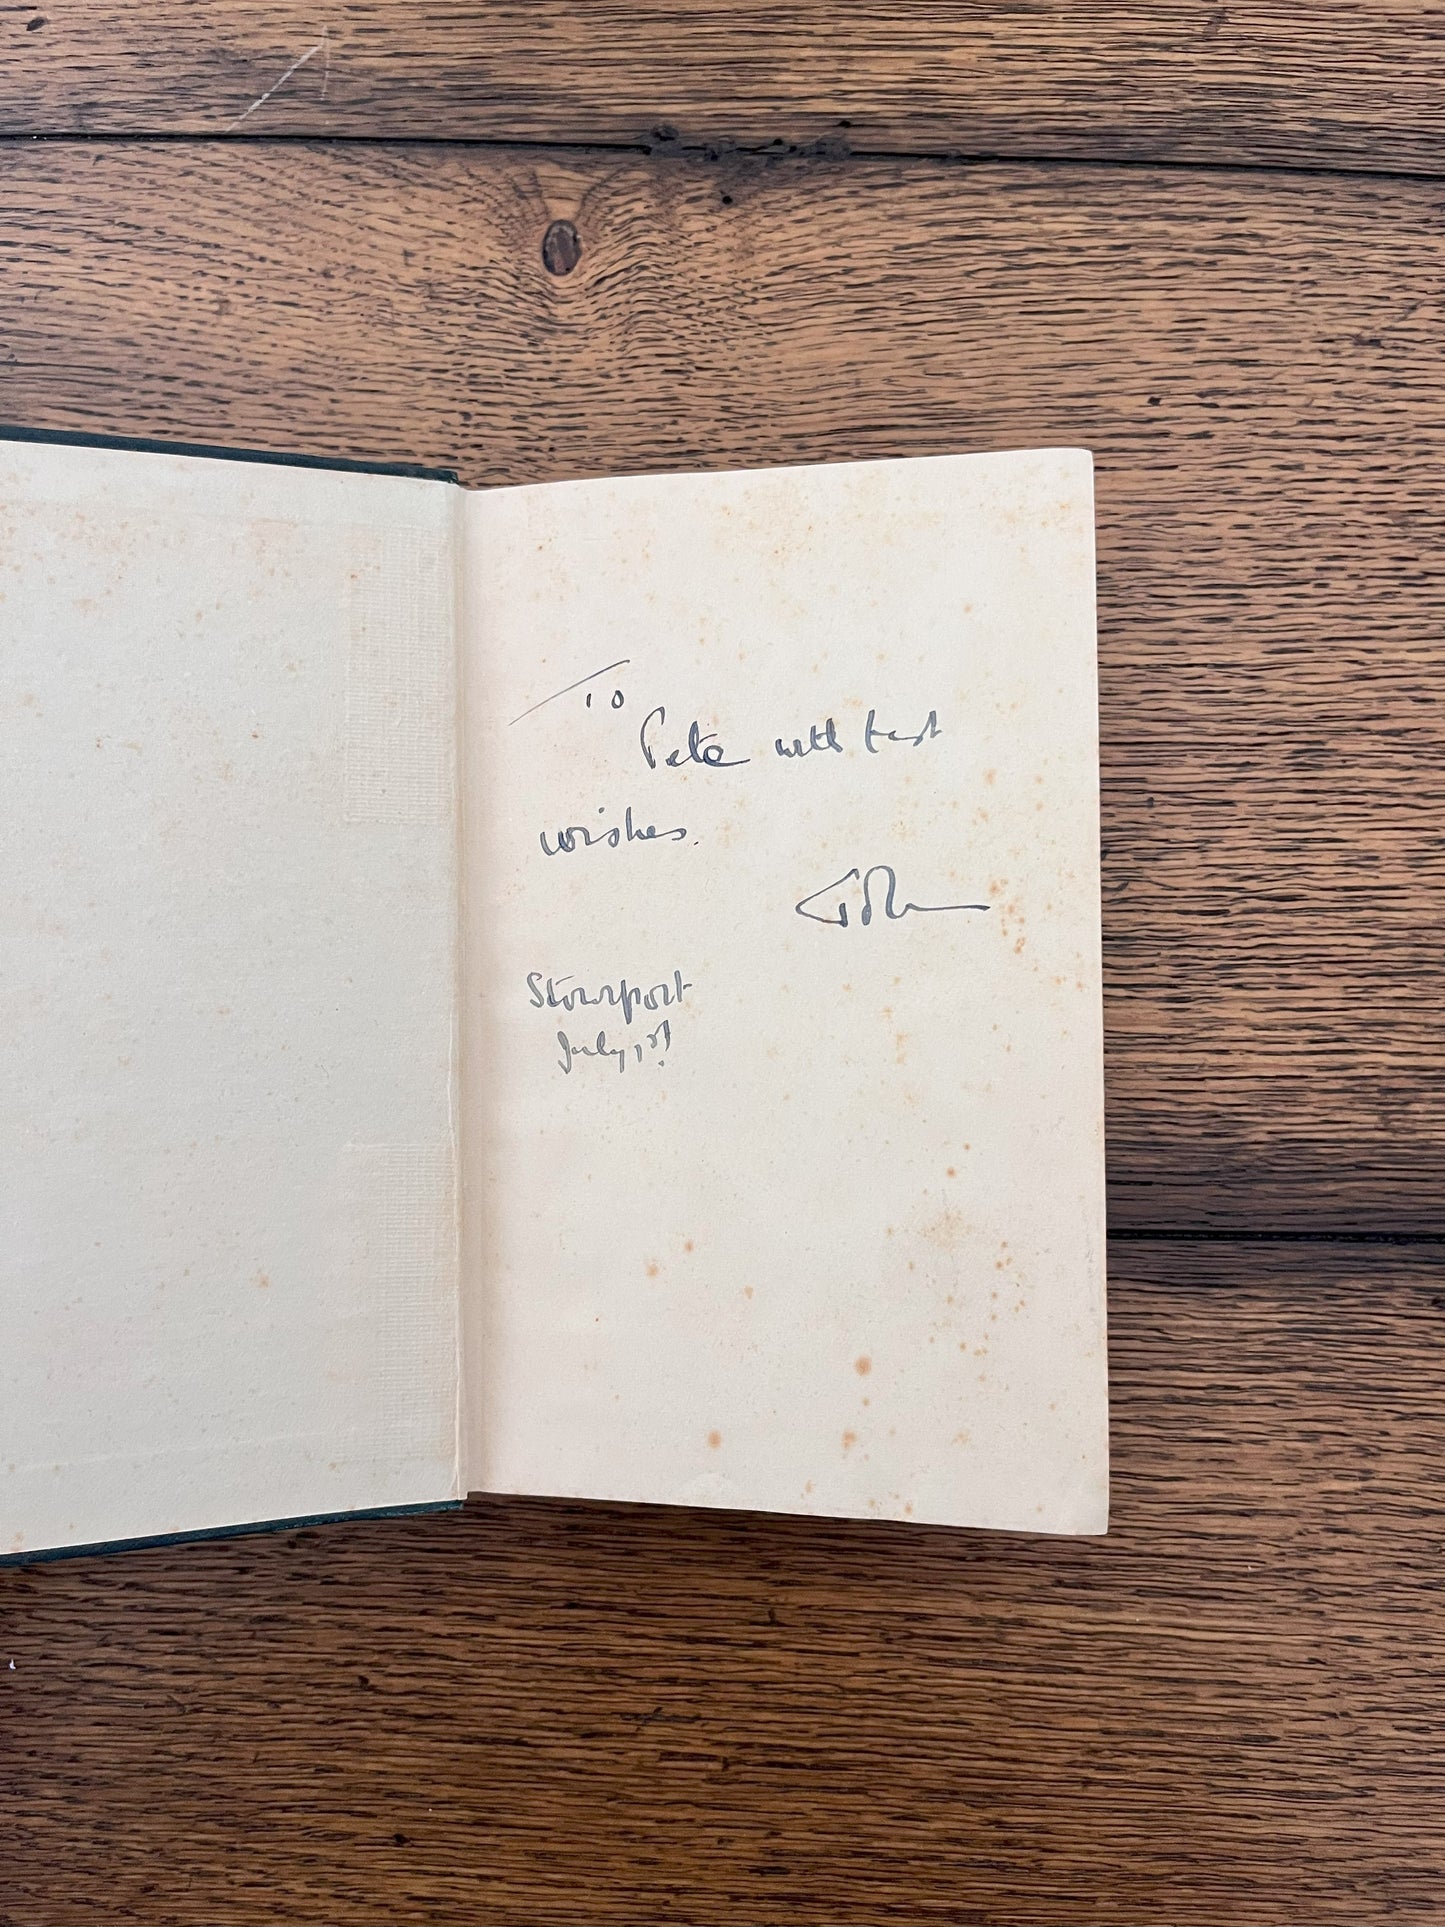 To
Pete with best
wishes.
Stourport
July 1st.